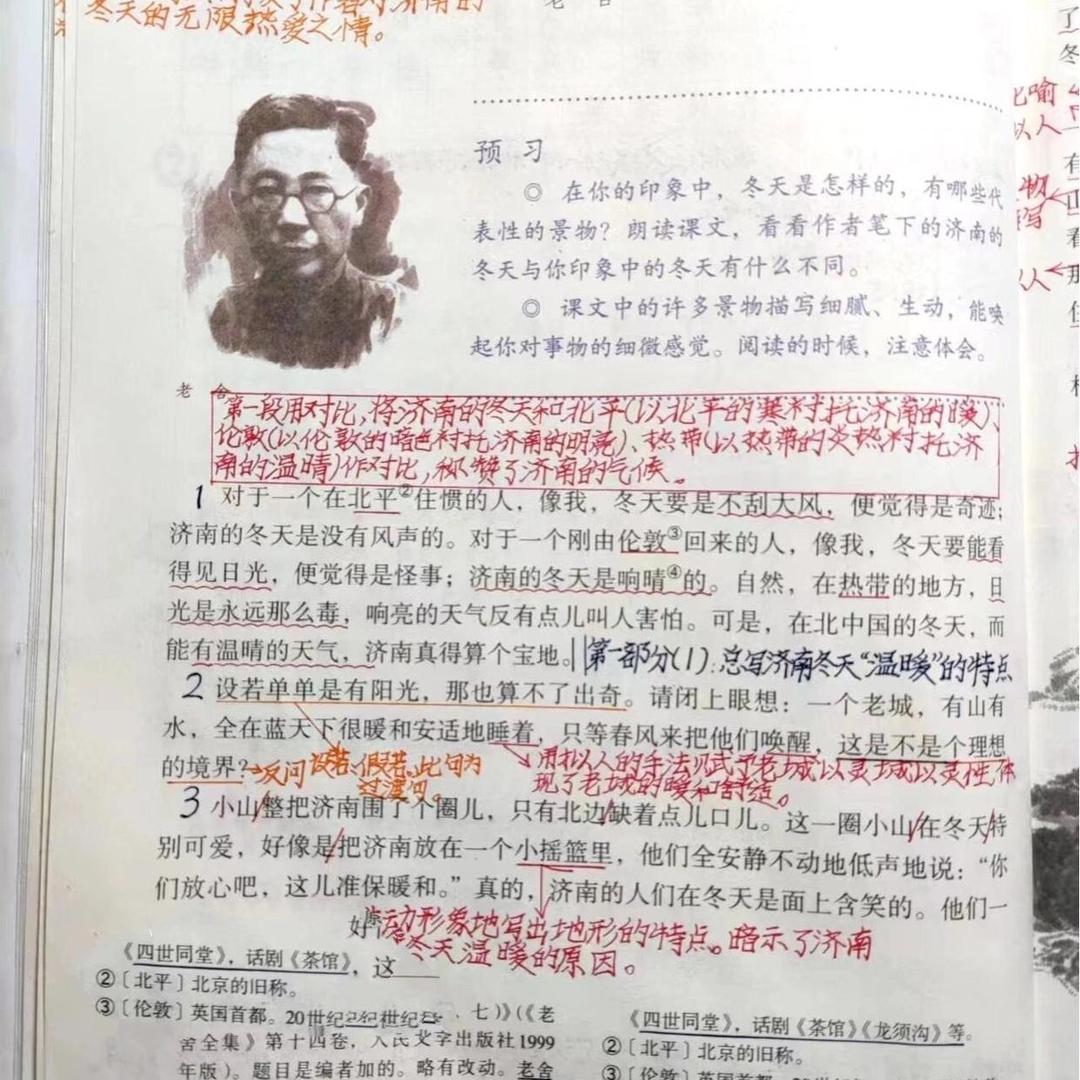 冬天的无限热爱之情。
老 舍
预 习
◎ 在你的印象中，冬天是怎样的，有哪些代
表性的景物？朗读课文，看看作者笔下的济南的
冬天与你印象中的冬天有什么不同。
◎ 课文中的许多景物描写细腻、生动，能唤
起你对事物的细微感觉。阅读的时候，注意体会。
老 舍
第一段用对比，将济南的冬天和北平(以北平的寒衬托济南的暖)、
伦敦(以伦敦的暗色衬托济南的明亮)、热带(以热带的炎热衬托济
南的温晴)作对比，称赞了济南的气候。
1 对于一个在北平②住惯的人，像我，冬天要是不刮大风，便觉得是奇迹；
济南的冬天是没有风声的。对于一个刚由伦敦③回来的人，像我，冬天要能看
得见日光，便觉得是怪事；济南的冬天是响晴④的。自然，在热带的地方，日
光是永远那么毒，响亮的天气反有点儿叫人害怕。可是，在北中国的冬天，而
能有温晴的天气，济南真得算个宝地。‖第一部分(1)：总写济南冬天“温暖”的特点
2 设若单单是有阳光，那也算不了出奇。请闭上眼想：一个老城，有山有
水，全在蓝天下很暖和安适地睡着，只等春风来把他们唤醒，这是不是个理想
的境界？
→反问 设若、假若。此句为
过渡句。
用拟人的手法 老城以灵 城以灵性，体
现了老城的暖和舒适。
3 小山/整把济南围了个圈儿，只有北边/缺着点儿口儿。这一圈小山/在冬天/特
别可爱，好像是/把济南放在一个小摇篮里，他们全安静不动地低声地说：“你
们放心吧，这儿准保暖和。”真的，济南的人们在冬天是面上含笑的。他们一
好
动形象地写出地形的特点。暗示了济南
冬天温暖的原因。
《四世同堂》，话剧《茶馆》，这
②〔北平〕北京的旧称。
③〔伦敦〕英国首都。20世纪
七）》（《老
舍全集》第十四卷，人民文学出版社1999
年版）。题目是编者加的。略有改动。老舍
《四世同堂》，话剧《茶馆》《龙须沟》等。
②〔北平〕北京的旧称。
③〔伦敦〕英国首都。